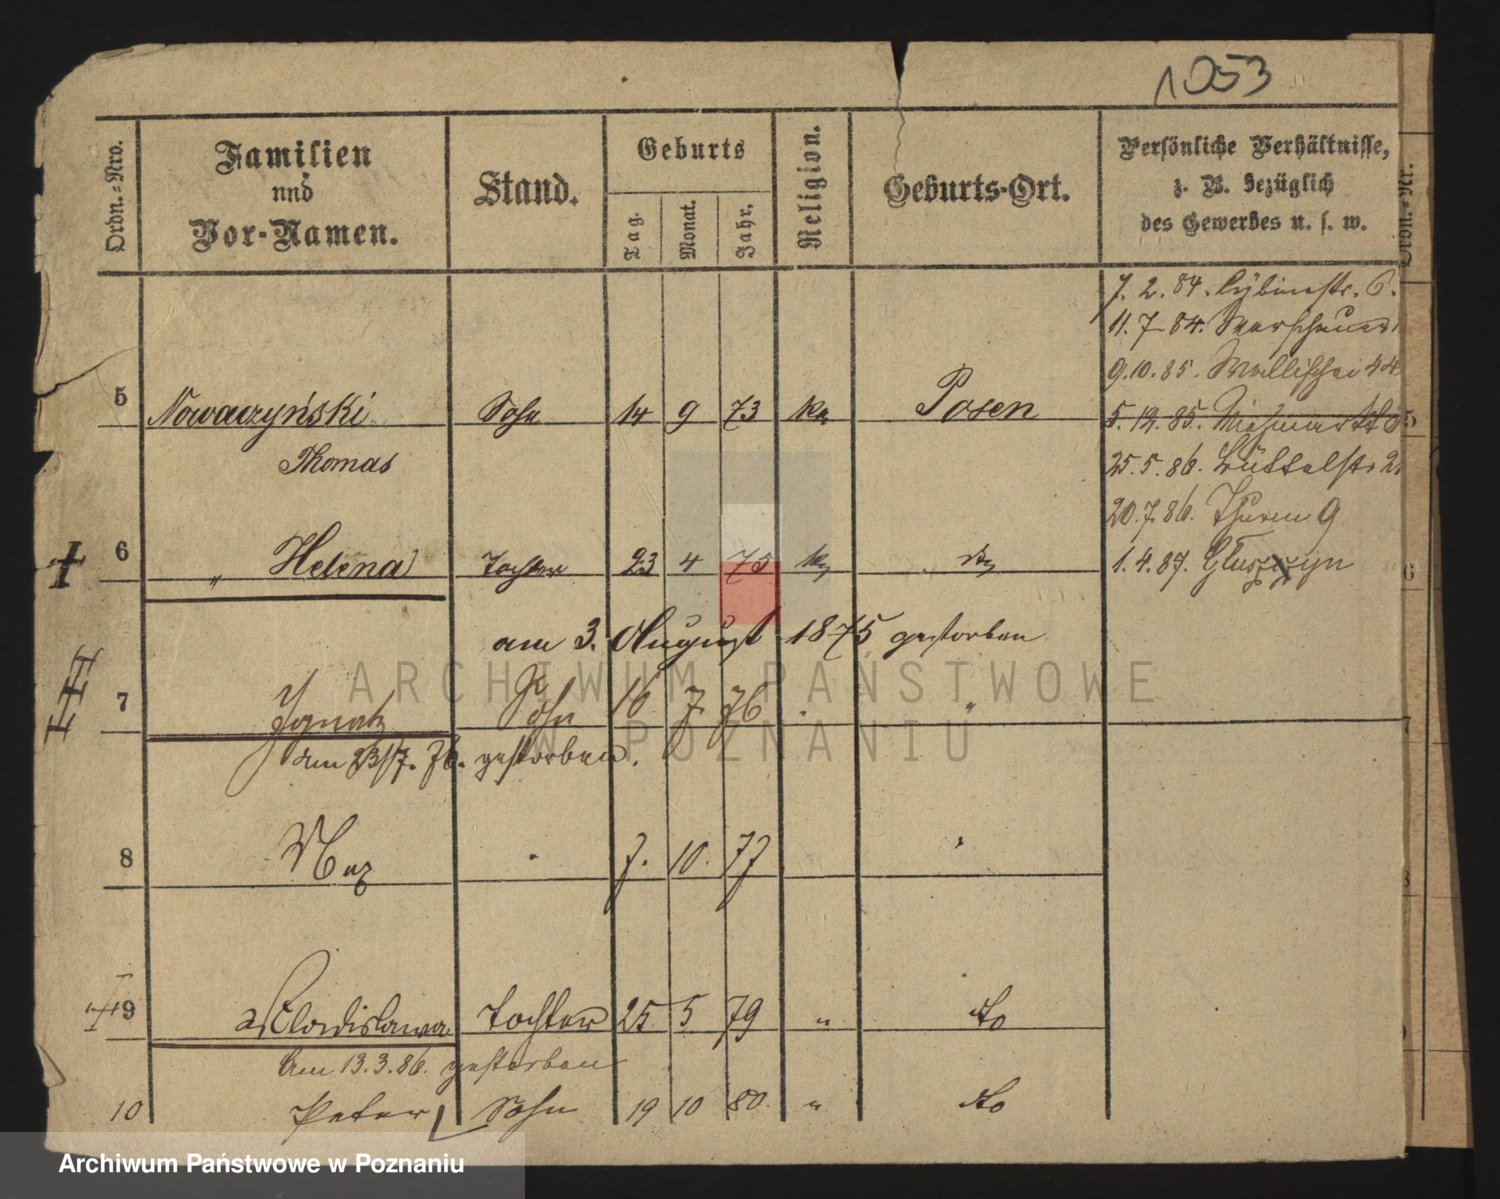 1053
Ordn.-Nro.
Familien
und
Vor-Namen.
Stand.
Geburts
Tag.
Monat.
Jahr.
Religion.
Geburts-Ort.
Persönliche Verhältnisse,
z. B. bezüglich
des Gewerbes u. s. w.
Ordn.-Nr.
7. 2. 84. Cybinastr. 6.
11. 7. 84. Warschauer
9. 10. 85. Wallischei 44
5 Nowaczyński Sohn 14 9 73 ka Posen
5. 12. 85. Viehmarkt
Thomas
25. 5. 86. Büttelstr 2.
20. 7. 86. Thurm 9
6 " Helena Tochter 23 4 75
1. 4. 87. Gluszyn
am 3. August 1875 gestorben
7 Ignatz Sohn 16 7 76 "
am 23/7. 76. gestorben.
8 Max 7. 10. 77 "
9 Wladislawa Tochter 25 5 79 " do
Am 13. 3. 86. gestorben
10 Peter Sohn 19 10 80. " do
5
6
7
8
ARCHIWUM PAŃSTWOWE
W POZNANIU
Archiwum Państwowe w Poznaniu